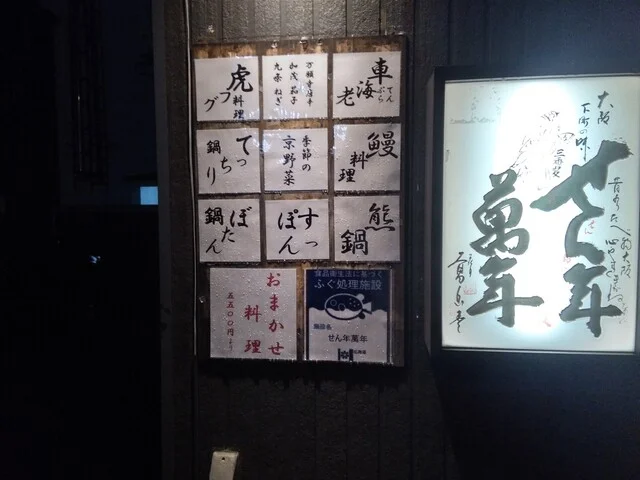 車海老
てんぷら
万願寺唐辛
加茂茄子
九条ねぎ
虎フグ
料理
鰻
料理
季節の
京野菜
てっちり
鍋
熊
鍋
すっ
ぽん
ぼたん
鍋
おまかせ
料理
五五〇〇円より
食品衛生法に基づく
ふぐ処理施設
施設名
せん年萬年
大阪
下町の味
せん年
萬年